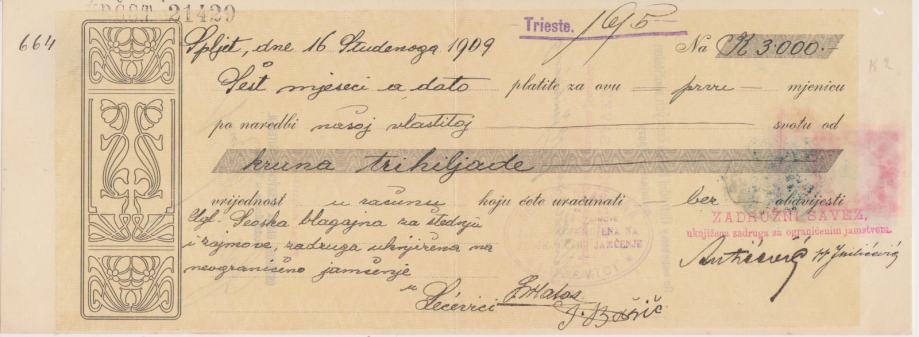 21429
664
Trieste.
Spljet, dne 16 Studenoga 1909 Na K 3.000.-
Šest mjeseci a dato platite za ovu prvu mjenicu
po naredbi našoj vlastitoj svotu od
kruna trihiljade
vrijednost u računu koju ćete uračunati bez obavijesti
Seoska blagajna za štednju
i zajmove, zadruga uknjižena na
neograničeno jamčenje
u Lećevici
ZADRUŽNI SAVEZ,
uknjižena zadruga sa ograničenim jamstvom.
K 2